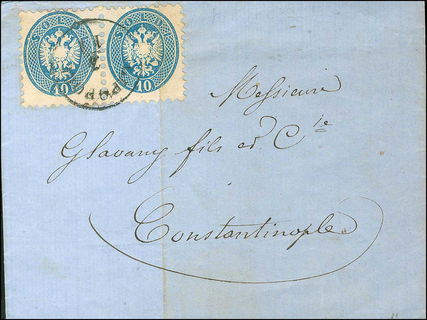 SOLDI SOLDI
10 10
Messieurs
Glavany fils et Cie
Constantinople